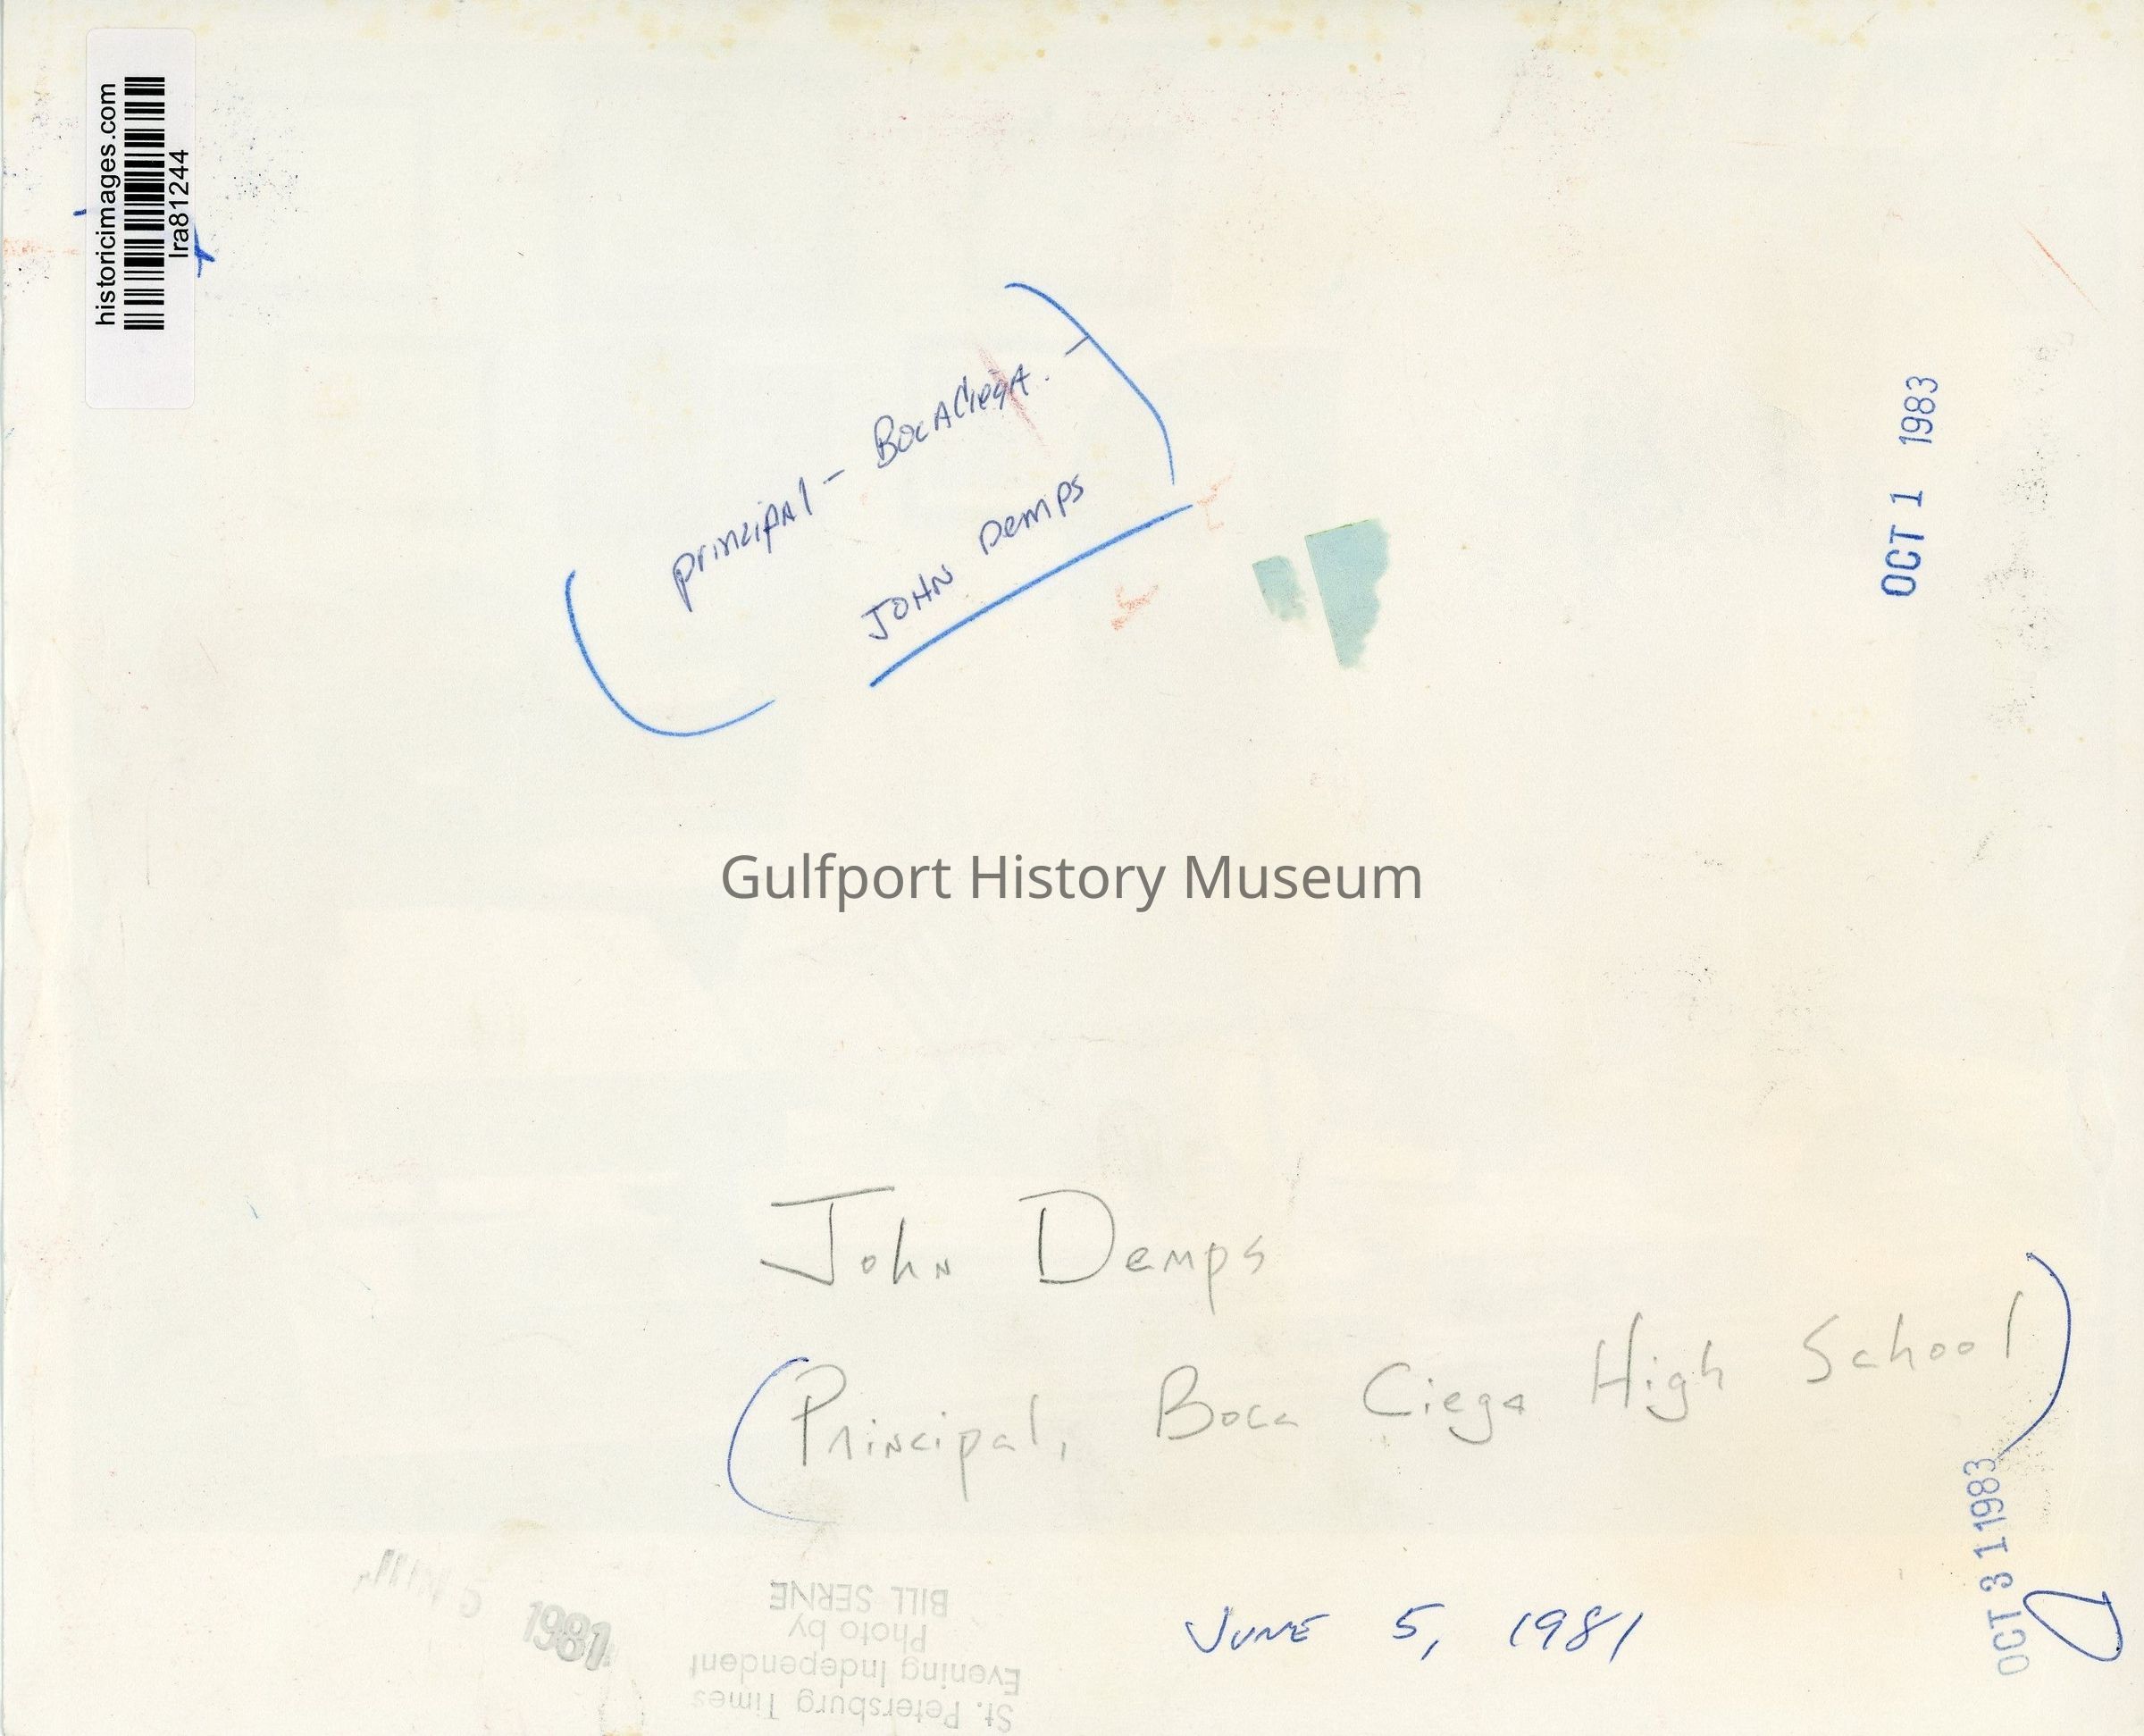 historicimages.com
lra81244
principal - BocACiegA.
JOHN Demps
OCT 1 1983
Gulfport History Museum
John Demps
(Principal, Boca Ciega High School)
OCT 3 1 1983
1981
JUNE 5, 1981
St. Petersburg Times
Evening Independent
Photo by
BILL SERNE